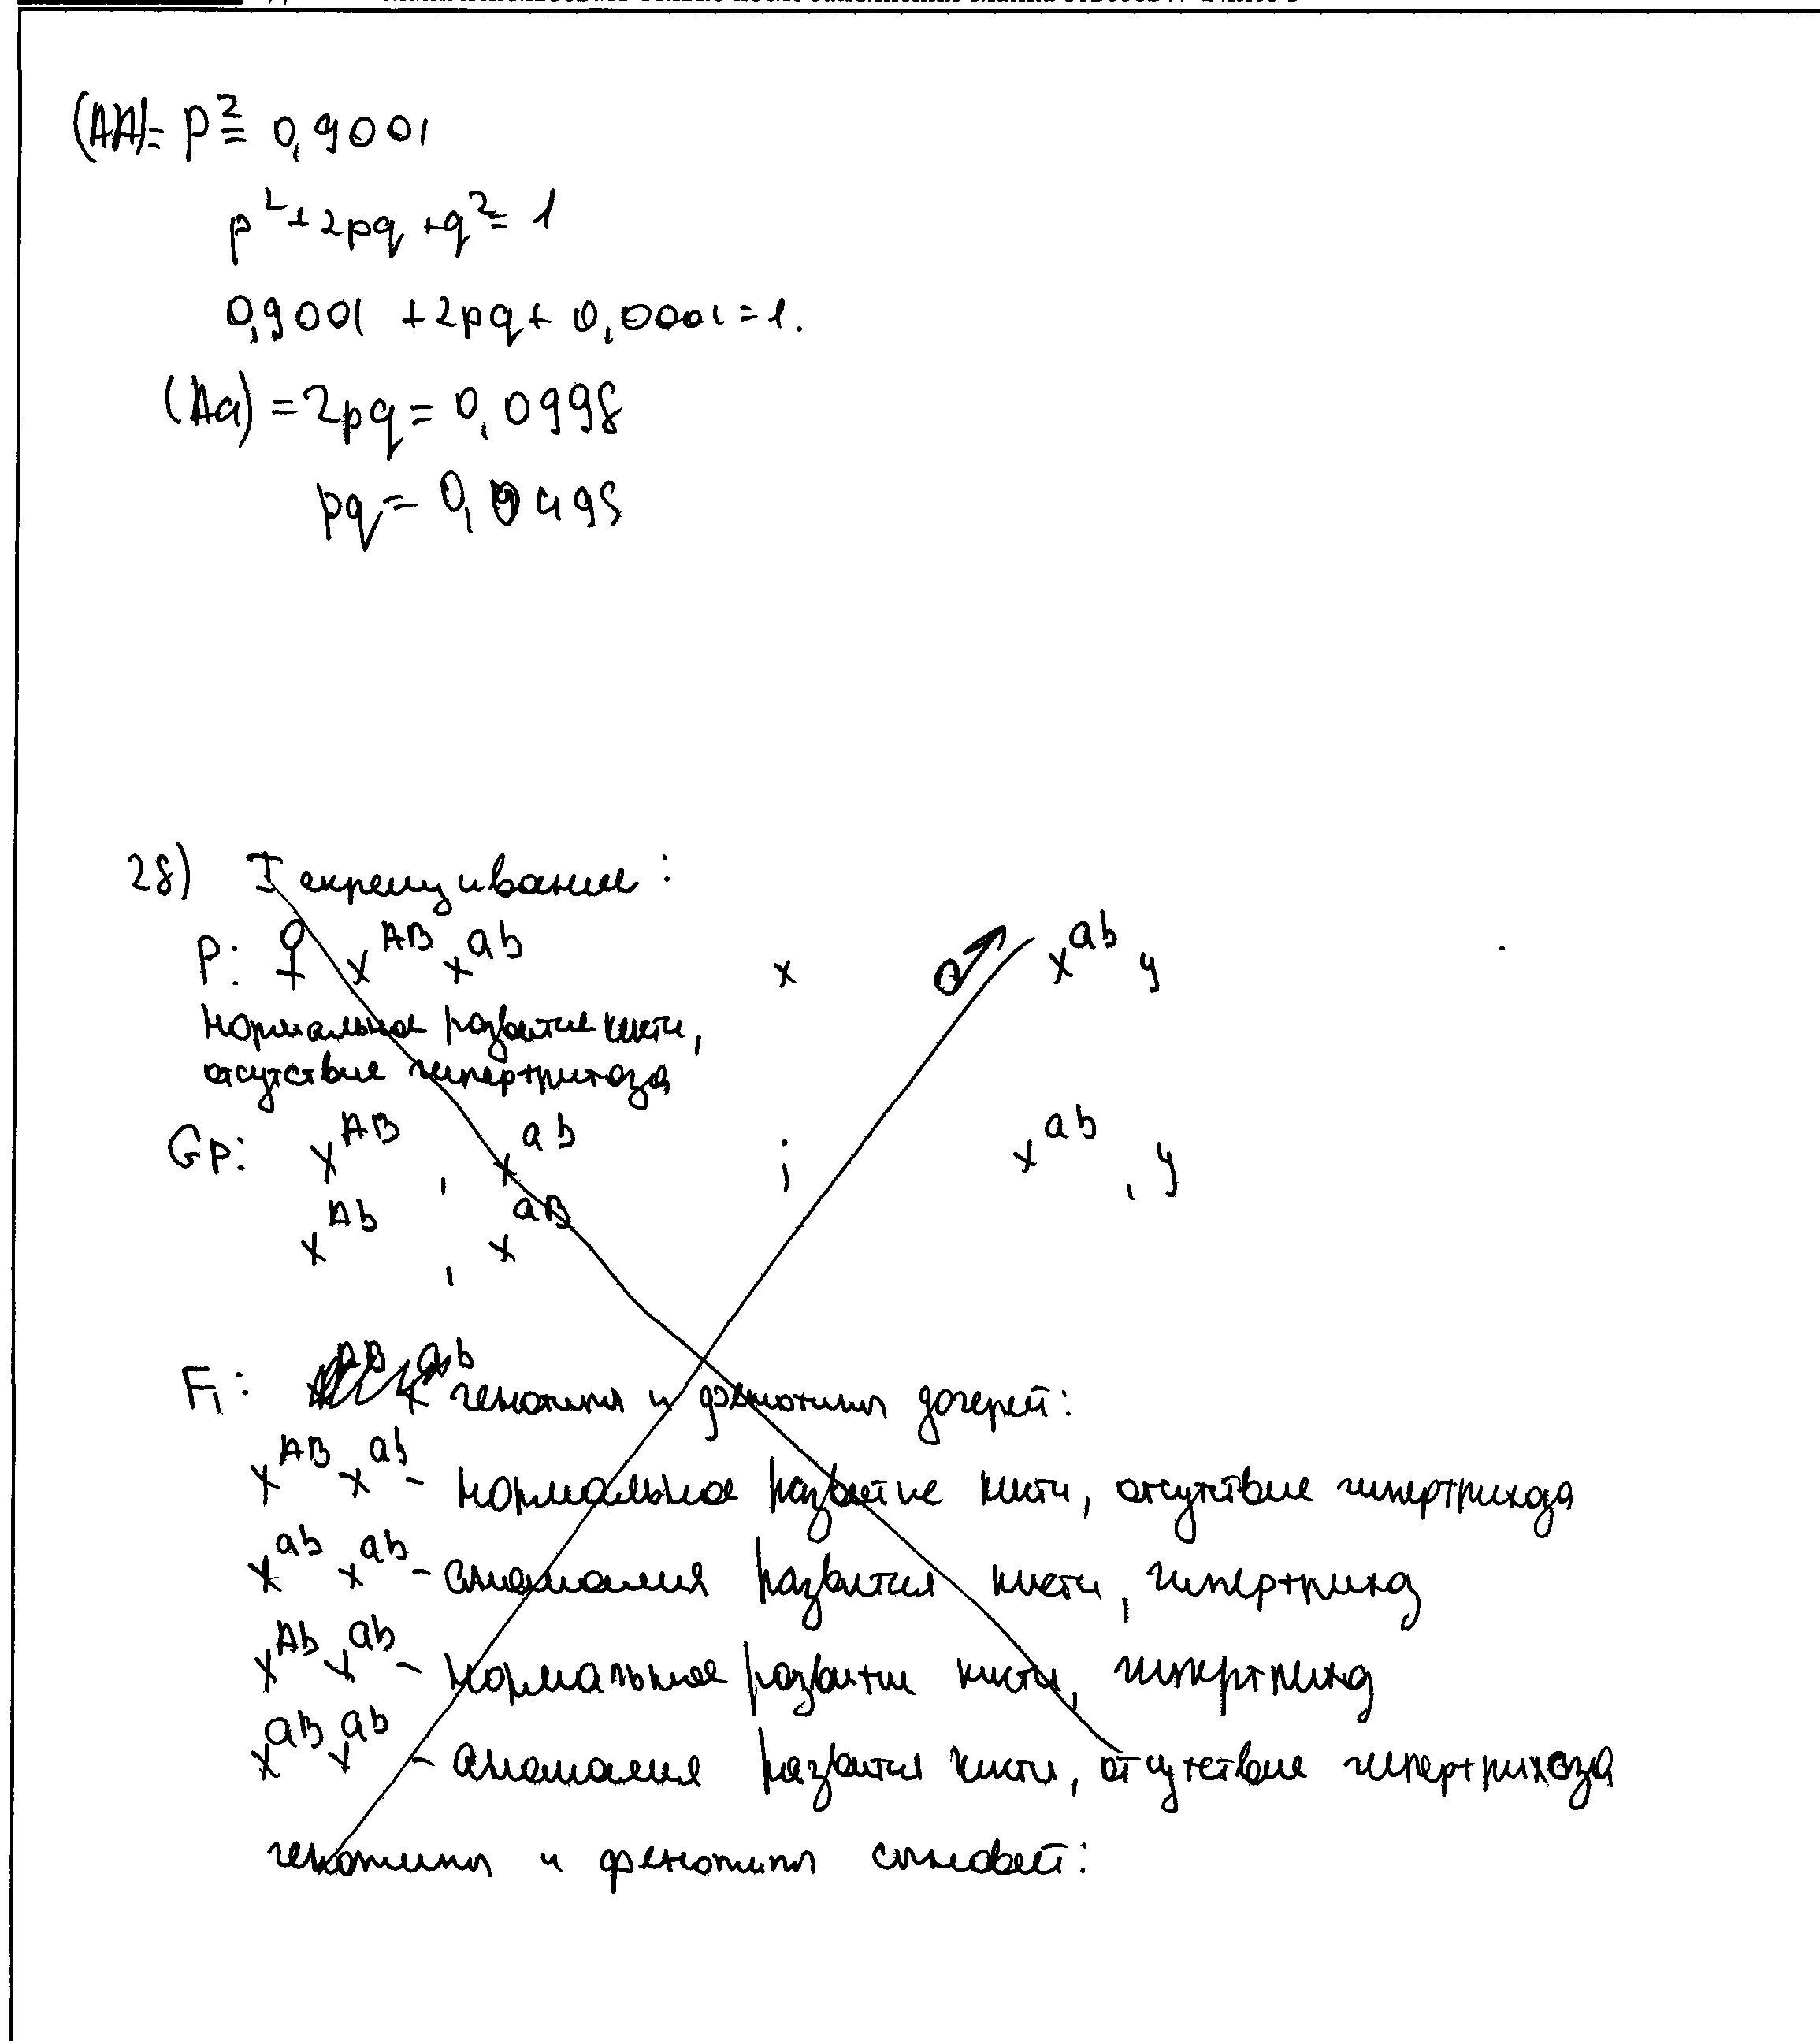 (AA)= p²= 0,9001
p²+2pq+q²= 1
0,9001 +2pq+ 0,0001=1.
(Aa) =2pq= 0,0998
pq= 0,0498
28) I скрещивание:
P: ♀ X^AB X^ab x ♂ X^ab y
нормальное развитие кисти,
отсутствие гипертрихоза
Gp: X^AB , X^ab ; X^ab , y
X^Ab , X^aB
F₁: генотипы и фенотипы дочерей:
X^AB X^ab - нормальное развитие кисти, отсутствие гипертрихоза
X^ab X^ab - аномалия развития кисти, гипертрихоз
X^Ab X^ab - нормальное развитие кисти, гипертрихоз
X^aB X^ab - аномалия развития кисти, отсутствие гипертрихоза
генотипы и фенотипы сыновей: